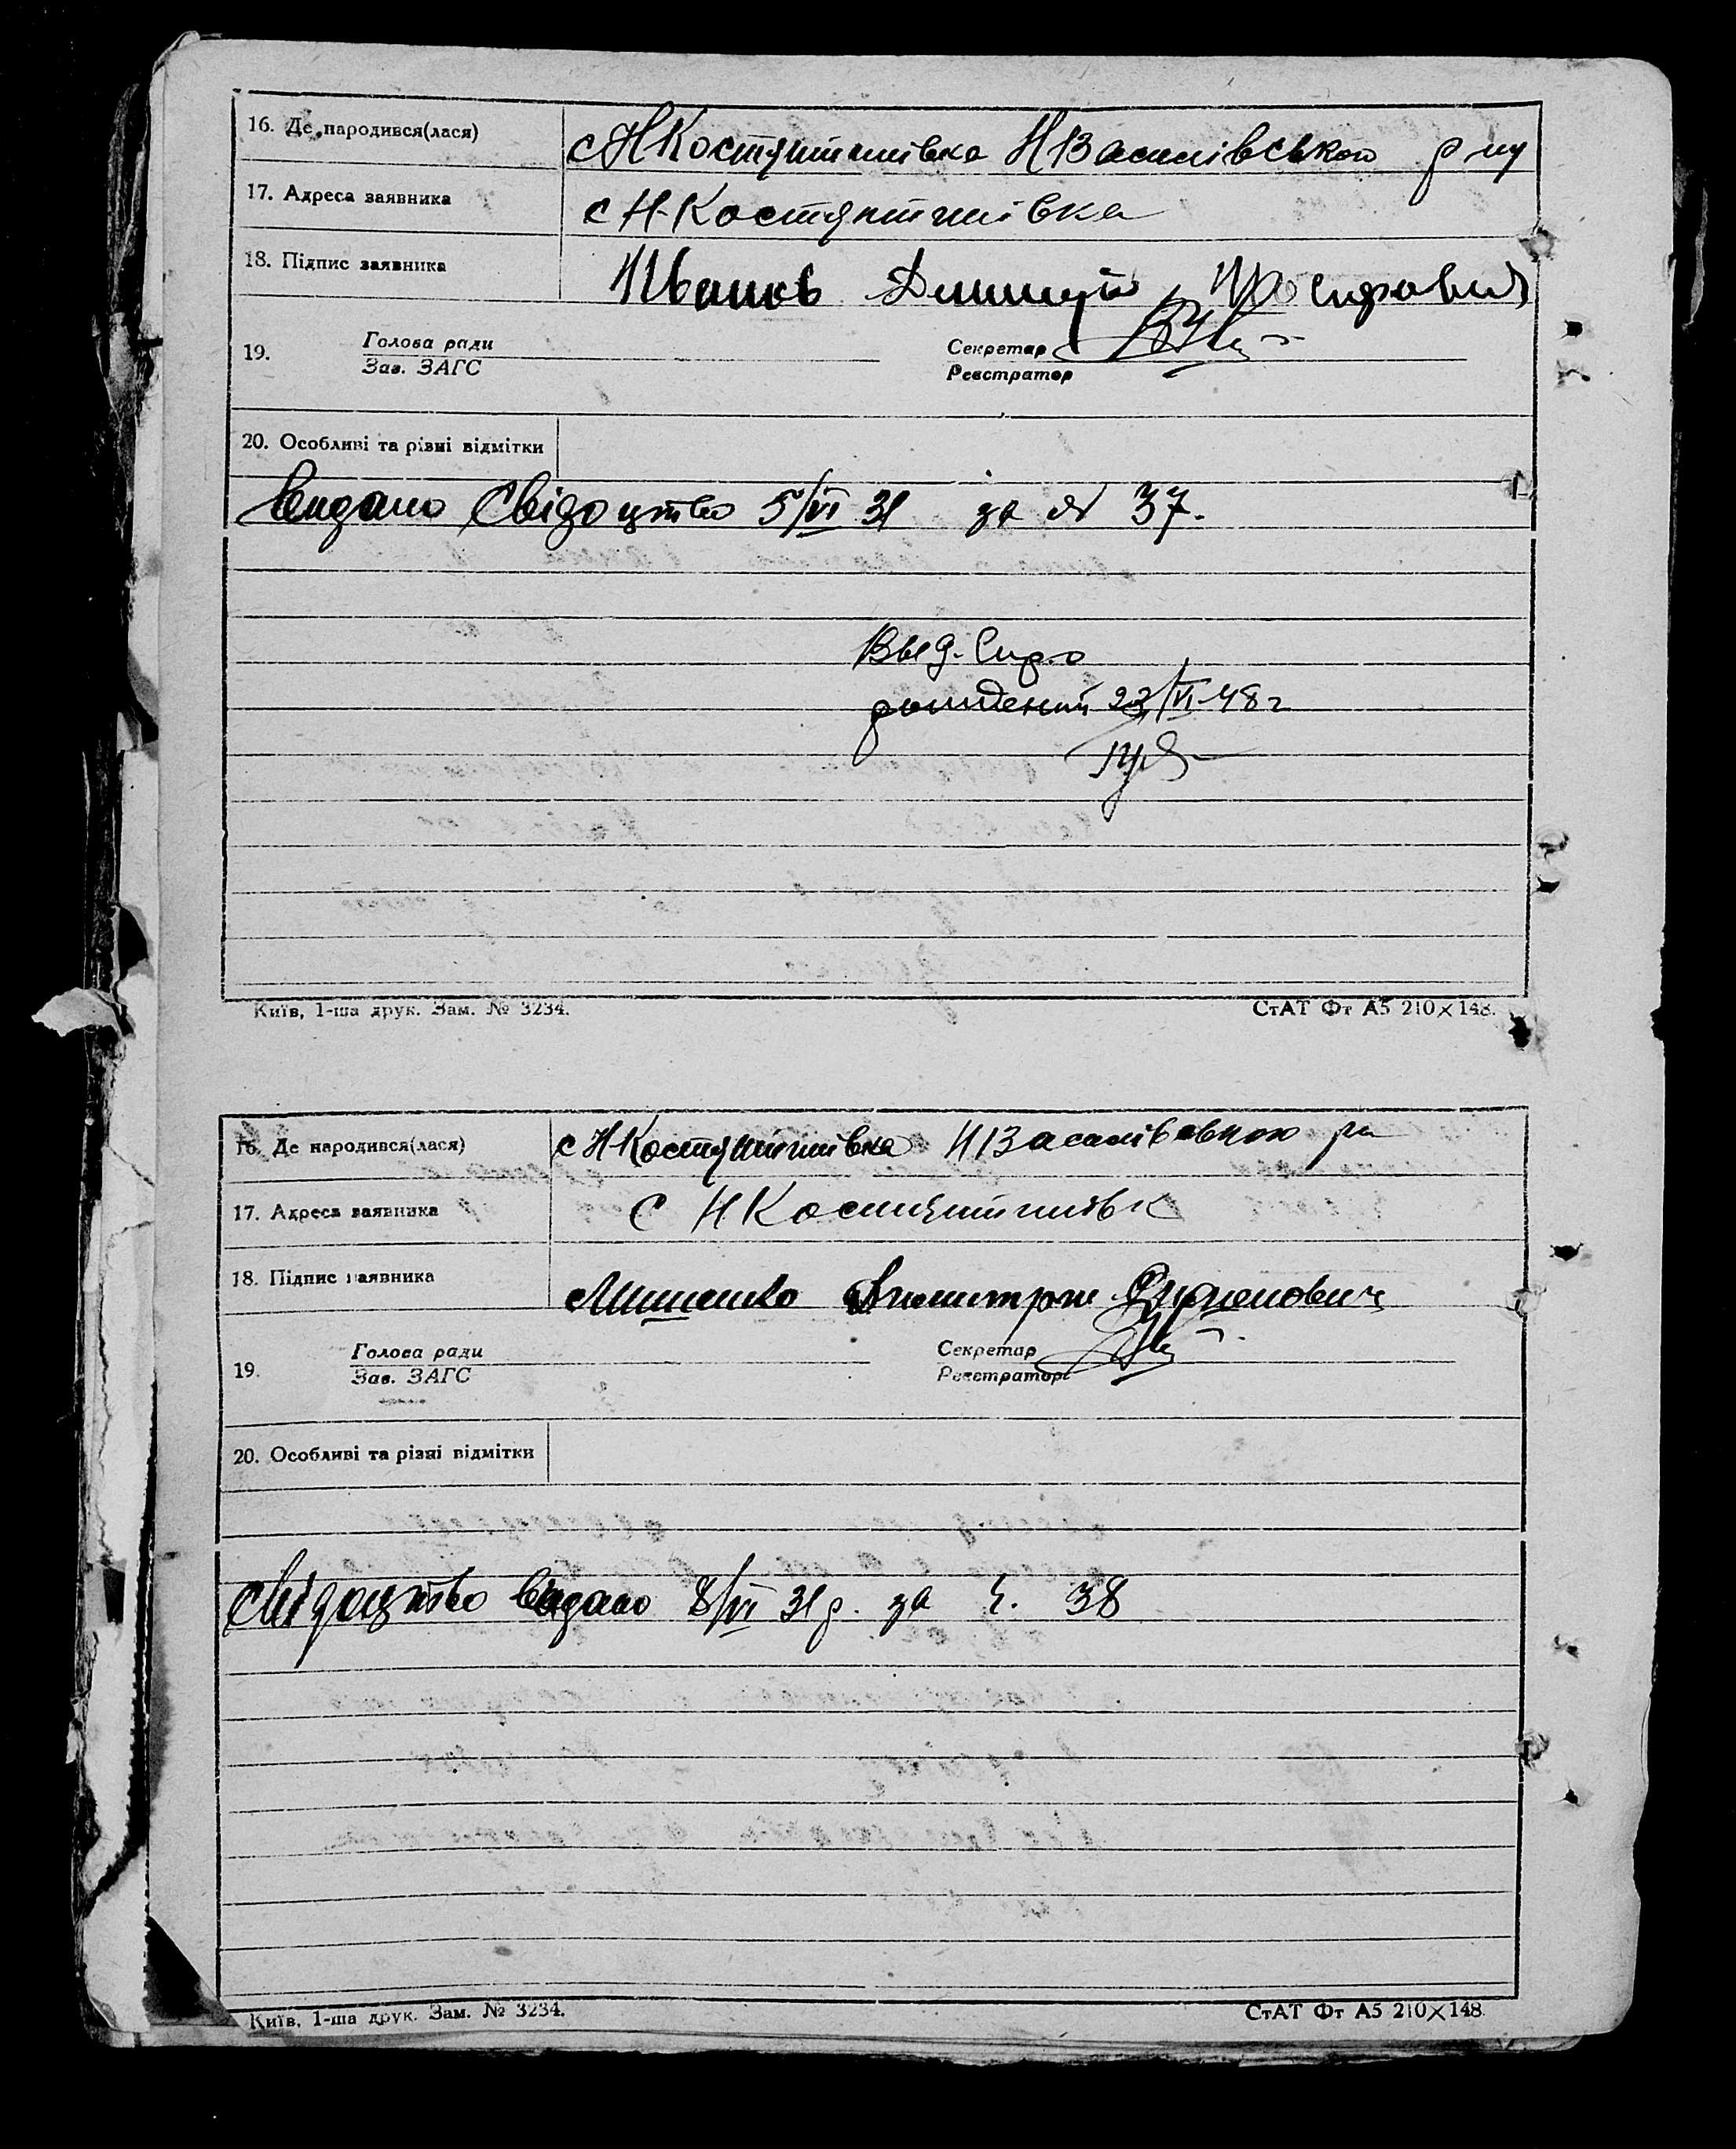 16. Де народився(лася) с Н Костянтинівка Н Василівською р ну
17. Адреса заявника с Н-Костянтинівка
18. Підпис заявника Иванов Дмитрий
19. Голова ради Секретар
Зав. ЗАГС Реєстратор
20. Особливі та різні відмітки
Видано Свідоцтво 5/VI 31 за № 37.
Выд. Спр. о
рождении 22/VI-48 г
Київ, 1-ша друк. Зам. № 3234. СтАТ Фт А5 210×148.
16. Де народився(лася) с Н-Костянтинівка Н Василівською ра
17. Адреса заявника с Н Костянтинівк
18. Підпис заявника Мишенко Димитрш
19. Голова ради Секретар
Зав. ЗАГС Реєстратор
20. Особливі та різні відмітки
Свідоцтво видано 8/VI 31 р. за ч. 38
Київ, 1-ша друк. Зам. № 3234. СтАТ Фт А5 210×148.